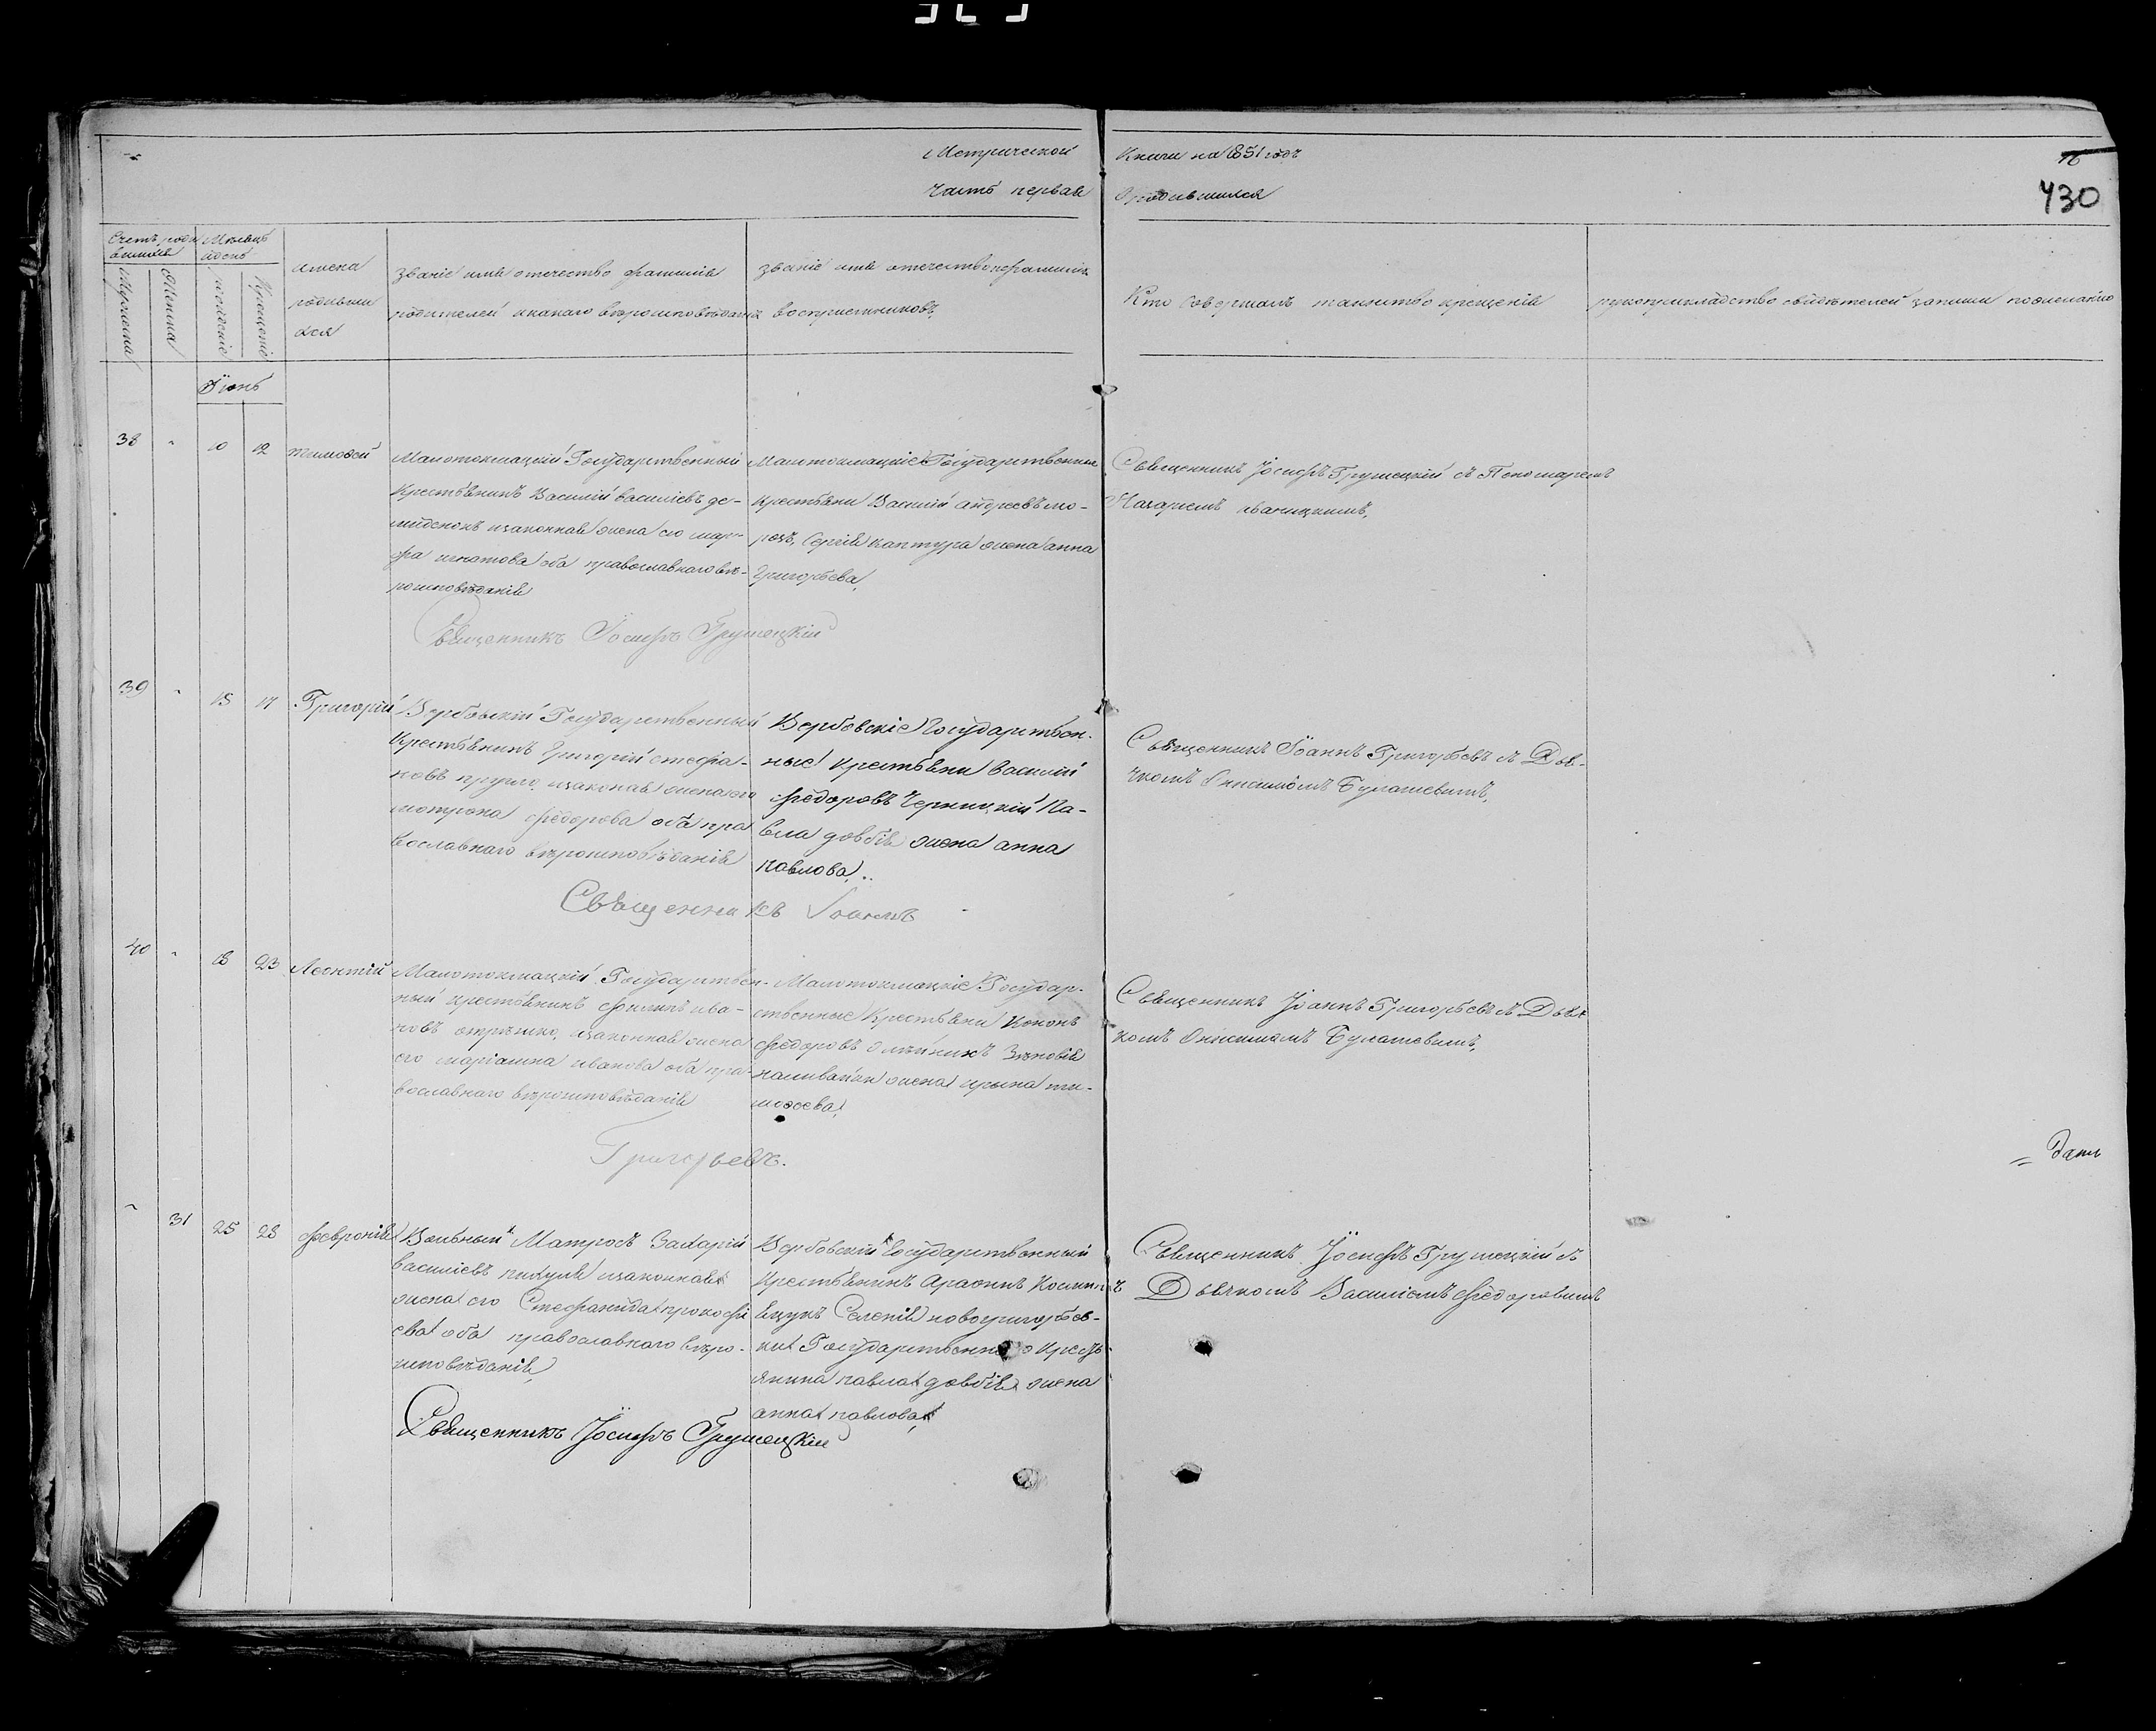 Метрической Книги на 1851 годъ
Часть первая О родившихся
430
Счетъ роди
вшихся
Мужеска
Женска
Мѣсяцъ
и день
рожденіе
Крещеніе
имена
родивши
хся
званіе имя отечество фамилія
родителей и какого вѣроисповѣданія
званіе имя отечество и фамилія
воспріемниковъ
Кто совершалъ таинство крещенія
рукоприкладство свидѣтелей записи по желанію
Іюнь
38 " 10 12 тимоѳей
Малотокмацкій Государственный
Крестьянинъ Василій василіевъ де-
миденокъ и законная жена его мар-
фа игнатова оба православнаго вѣ-
роисповѣданія
Малотокмацкіе Государственные
Крестьяни Василій андреевъ мо-
розъ, Сергія каптура жена анна
Григорьева,
Священникъ Іосифъ Грушецкій съ Пономаремъ
Назаріемъ иваницкимъ,
Священникъ Іосифъ Грушецкій
39 " 15 17 Григорій
Вербовскій Государственный
Крестьянинъ Григорій стефа-
новъ кругло, и законая жена его
мотрона федорова оба пра
вославнаго вѣроисповѣданія
Вербовскіе Государствен-
ные Крестьяни василій
федоровъ Черницкій Па-
вла довбія жена анна
павлова,..
Священникъ Іоаннъ Григорьевъ съ Дья-
чкомъ Онисимомъ Булашевимъ,
Священникъ Іоаннъ
40 " 18 23 Леонтій
Малотокмацкій Государствен-
ный крестьянинъ филипъ ива-
новъ отрѣшко, и законная жена
его маріанна иванова оба пра-
вославнаго вѣроисповѣданія
Малотокмацкіе Государ-
ственные Крестьяни Кононъ
федоровъ олѣйникъ Зѣновія
наливайки жена ирына ти-
моѳеева,
Священникъ Іоаннъ Григорьевъ съ Дьяч
комъ Онисимамъ Булашевимъ,
Григорьевъ.
= Дать
" 31 25 28 февронія
Вольный Матросъ Захарій
василіевъ пихуля и законная
жена его Стефанида прокофі
ева оба православнаго вѣро-
исповѣданія,
Вербовскій Государственный
Крестьянинъ Арафинъ Косминъ
Яцукъ Селенія новогригорьев-
ки Государственнаго Кресть-
янина павла довбія жена
анна павлова,
Священникъ Іосифъ Грушецкій съ
Дьячкомъ Василіемъ федоровимъ
Священникъ Іосифъ Грушецкій